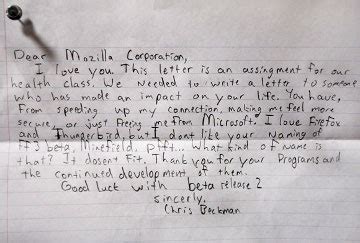 Dear Mozilla Corporation,
I love you. This letter is an assingment for our
health class. We needed to write a letter to someone
who has made an impact on your life. You have,
From speeding up my connection, making me feel more
secure, or just freeing me from Microsoft. I love Firefox
and Thunderbird, but I dont like your naming of
FF3 beta, Minefield, pfft... What kind of name is
that? It dosent Fit. Thank you for your Programs and
the continued development of them.
Good luck with beta release 2
sincerly,
Chris Beckman